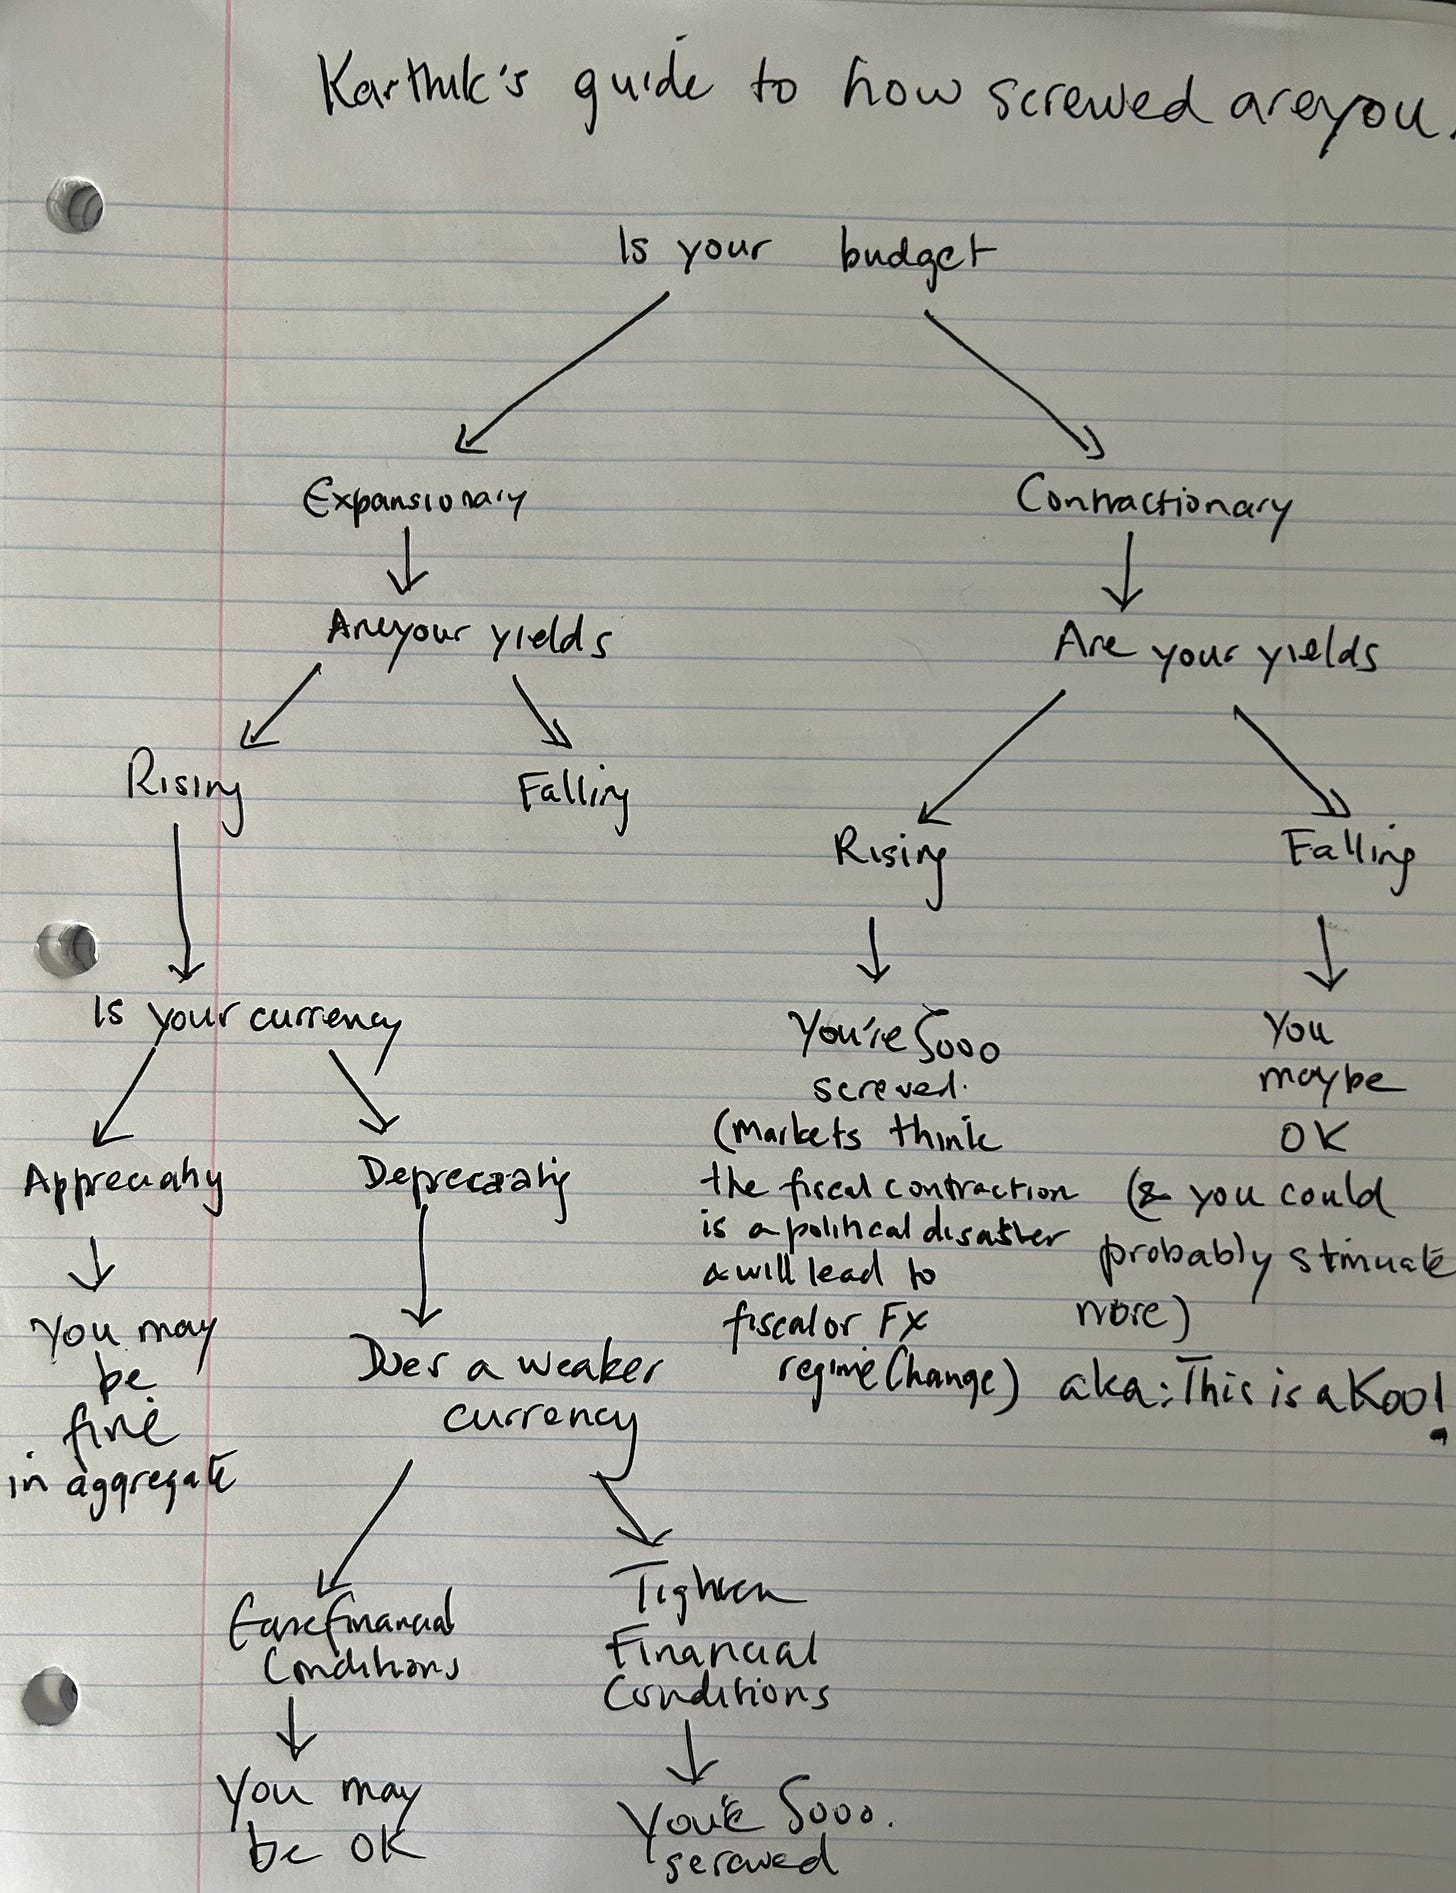 Karthik's guide to how screwed are you.
Is your budget
Expansionary
Contractionary
Are your yields
Are your yields
Rising
Falling
Rising
Falling
Is your currency
Appreciating
Depreciating
You may
be
fine
in aggregate
Does a weaker
currency
Ease financial
Conditions
You may
be OK
Tighten
Financial
Conditions
You're Sooo.
screwed
You're Sooo
screwed.
(Markets think
the fiscal contraction
is a political disaster
& will lead to
fiscal or FX
regime Change)
You
maybe
OK
(& you could
probably stimulate
more)
aka: This is a Koo!